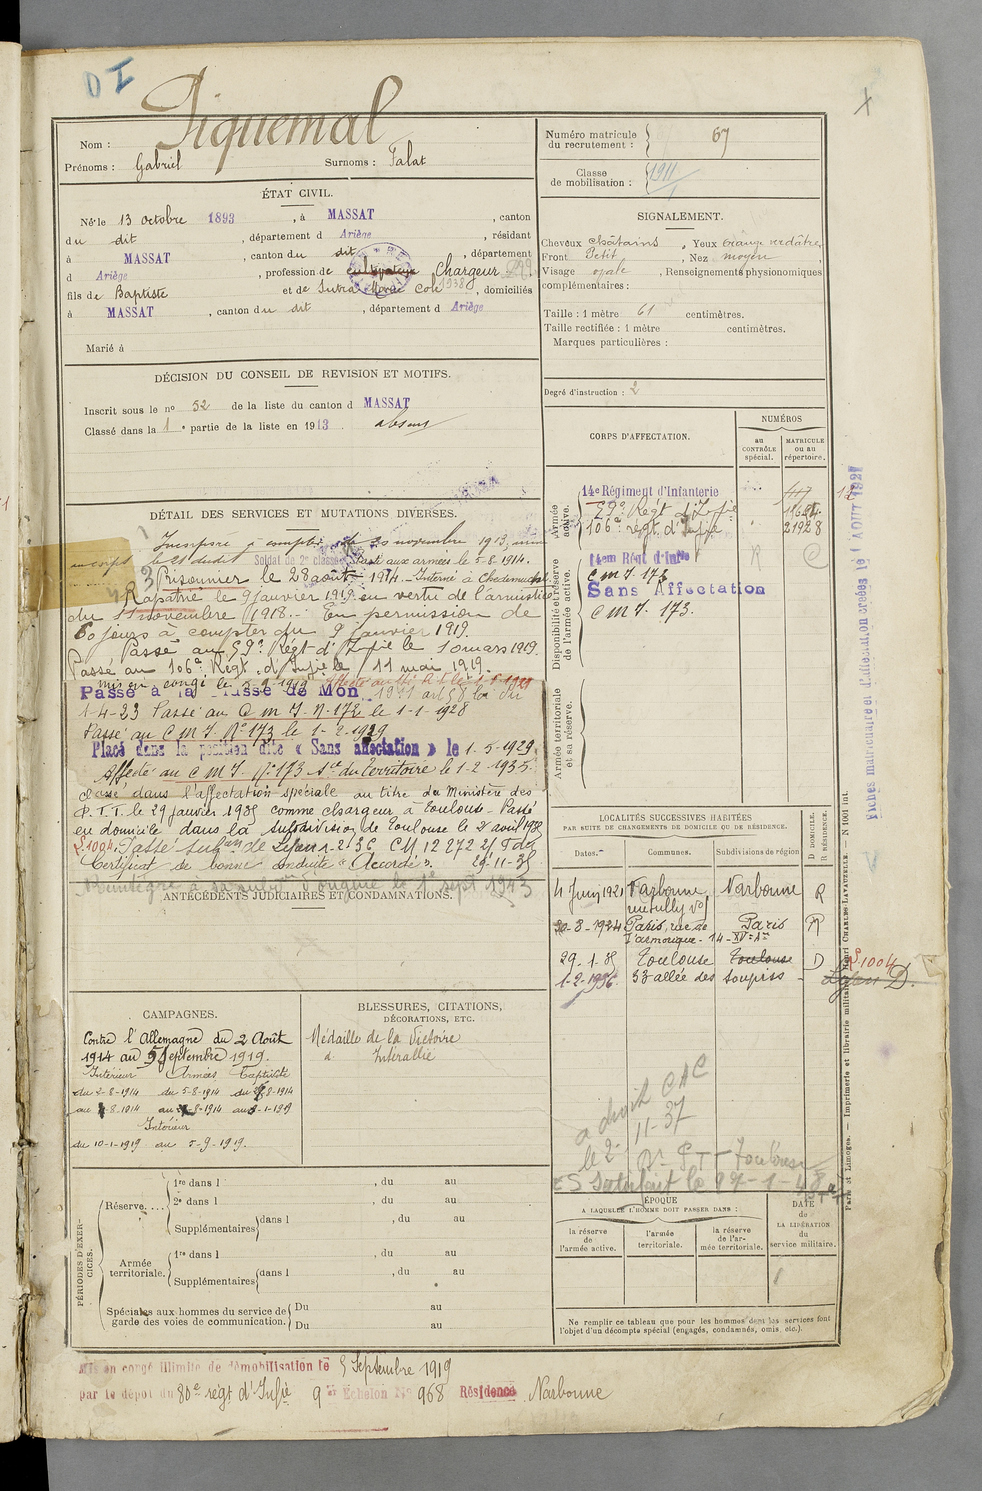 D I
Piquemal
Nom :
Prénoms : Gabriel Surnoms : Talat
Numéro matricule du recrutement : 67
Classe de mobilisation : 1911
ÉTAT CIVIL.
Né le 13 octobre 1893, à MASSAT, canton
du dit, département d Ariège, résidant
à MASSAT, canton du dit, département
d Ariège, profession de cultivateur Chargeur
fils de Baptiste et de Sutra, domiciliés
à MASSAT, canton du dit, département d Ariège
Marié à
SIGNALEMENT.
Cheveux châtains, Yeux orangé verdâtre,
Front Petit, Nez moyen,
Visage ovale, Renseignements physionomiques
complémentaires :
Taille : 1 mètre 61 centimètres.
Taille rectifiée : 1 mètre centimètres.
Marques particulières :
Degré d'instruction : 2
DÉCISION DU CONSEIL DE REVISION ET MOTIFS.
Inscrit sous le no 52 de la liste du canton d MASSAT
Classé dans la 1e partie de la liste en 1913. absent
CORPS D'AFFECTATION.
NUMÉROS
au CONTRÔLE spécial.
MATRICULE ou au répertoire.
Armée active.
14e Régiment d'Infanterie
59e Régt d'Infie
106e régt d'Infie 21928
Disponibilité et réserve de l'armée active.
14em Régt d'Infie
C M I. 173
Sans Affectation
C M I. 173.
Armée territoriale et sa réserve.
DÉTAIL DES SERVICES ET MUTATIONS DIVERSES.
Incorporé à compter du 20 novembre 1913,
au corps le 21 dudit Soldat de 2e classe Passé aux armées le 5-8-1914.
Prisonnier le 28 août 1914. Interné à
Rapatrié le 9 janvier 1919 en vertu de l'armistice
du 11 novembre 1918. En permission de
60 jours à compter du 9 janvier 1919.
Passé au 59e Régt d'Infie le 10 mars 1919.
Passé au 106e Régt d'Infie le 11 mai 1919.
Mis en congé le 5-9-1919
Passé à la classe de Mon 1911 art 58
1-4-23 Passé au C M I. No 172 le 1-1-1928
Passé au C M I. No 173 le 1-2-1929
Placé dans la position dite « Sans affectation » le 1-5-1929
Affecté au C M I. No 173 du territoire le 1-2-1935.
Classé dans l'affectation spéciale au titre du Ministère des
P.T.T. le 29 janvier 1935 comme chargeur à Toulouse. Passé
en domicile dans la subdivision de Toulouse le avril 1935
Certificat de bonne conduite « Accordé ». 29-11-35
Réintégré à d'origine le 1e sept 1943
ANTÉCÉDENTS JUDICIAIRES ET CONDAMNATIONS.
LOCALITÉS SUCCESSIVES HABITÉES
PAR SUITE DE CHANGEMENTS DE DOMICILE OU DE RÉSIDENCE.
Dates. Communes. Subdivisions de région D DOMICILE. R RÉSIDENCE.
4 Juin 1921 Narbonne Narbonne R
20-3-1924 Paris, rue de Paris R
l'armorique 14 - XVe
29-1-35 Toulouse Toulouse D
1-2-1936 33 allée des soupirs
CAMPAGNES.
Contre l'Allemagne du 2 Août
1914 au 5 Septembre 1919.
Intérieur Armées Captivité
du 2-8-1914 du 5-8-1914
Intérieur
du 10-1-1919 au 5-9-1919.
BLESSURES, CITATIONS,
DÉCORATIONS, ETC.
Médaille de la Victoire
d° Interallié
a droit CAC
le 2- 11-37
PTT Toulouse
ES Satisfait le 19-1-48
PÉRIODES D'EXERCICES.
Réserve....
1re dans l , du au
2e dans l , du au
Supplémentaires dans l , du au
Armée territoriale.
1re dans l , du au
Supplémentaires dans l , du au
Spéciales aux hommes du service de garde des voies de communication.
Du au
Du au
ÉPOQUE
A LAQUELLE L'HOMME DOIT PASSER DANS :
la réserve de l'armée active.
l'armée territoriale.
la réserve de l'armée territoriale.
DATE de LA LIBÉRATION du service militaire.
Ne remplir ce tableau que pour les hommes dont les services font
l'objet d'un décompte spécial (engagés, condamnés, omis, etc.).
Mis en congé illimité de démobilisation le 5 Septembre 1919
par le dépôt du 80e régt d'Infie 9e Échelon No 968 Résidence Narbonne
Fiches matriculaire et d'affectation créées le AOUT 1927
Paris et Limoges. — Imprimerie et librairie militaires Henri CHARLES-LAVAUZELLE. — N 1001 int.